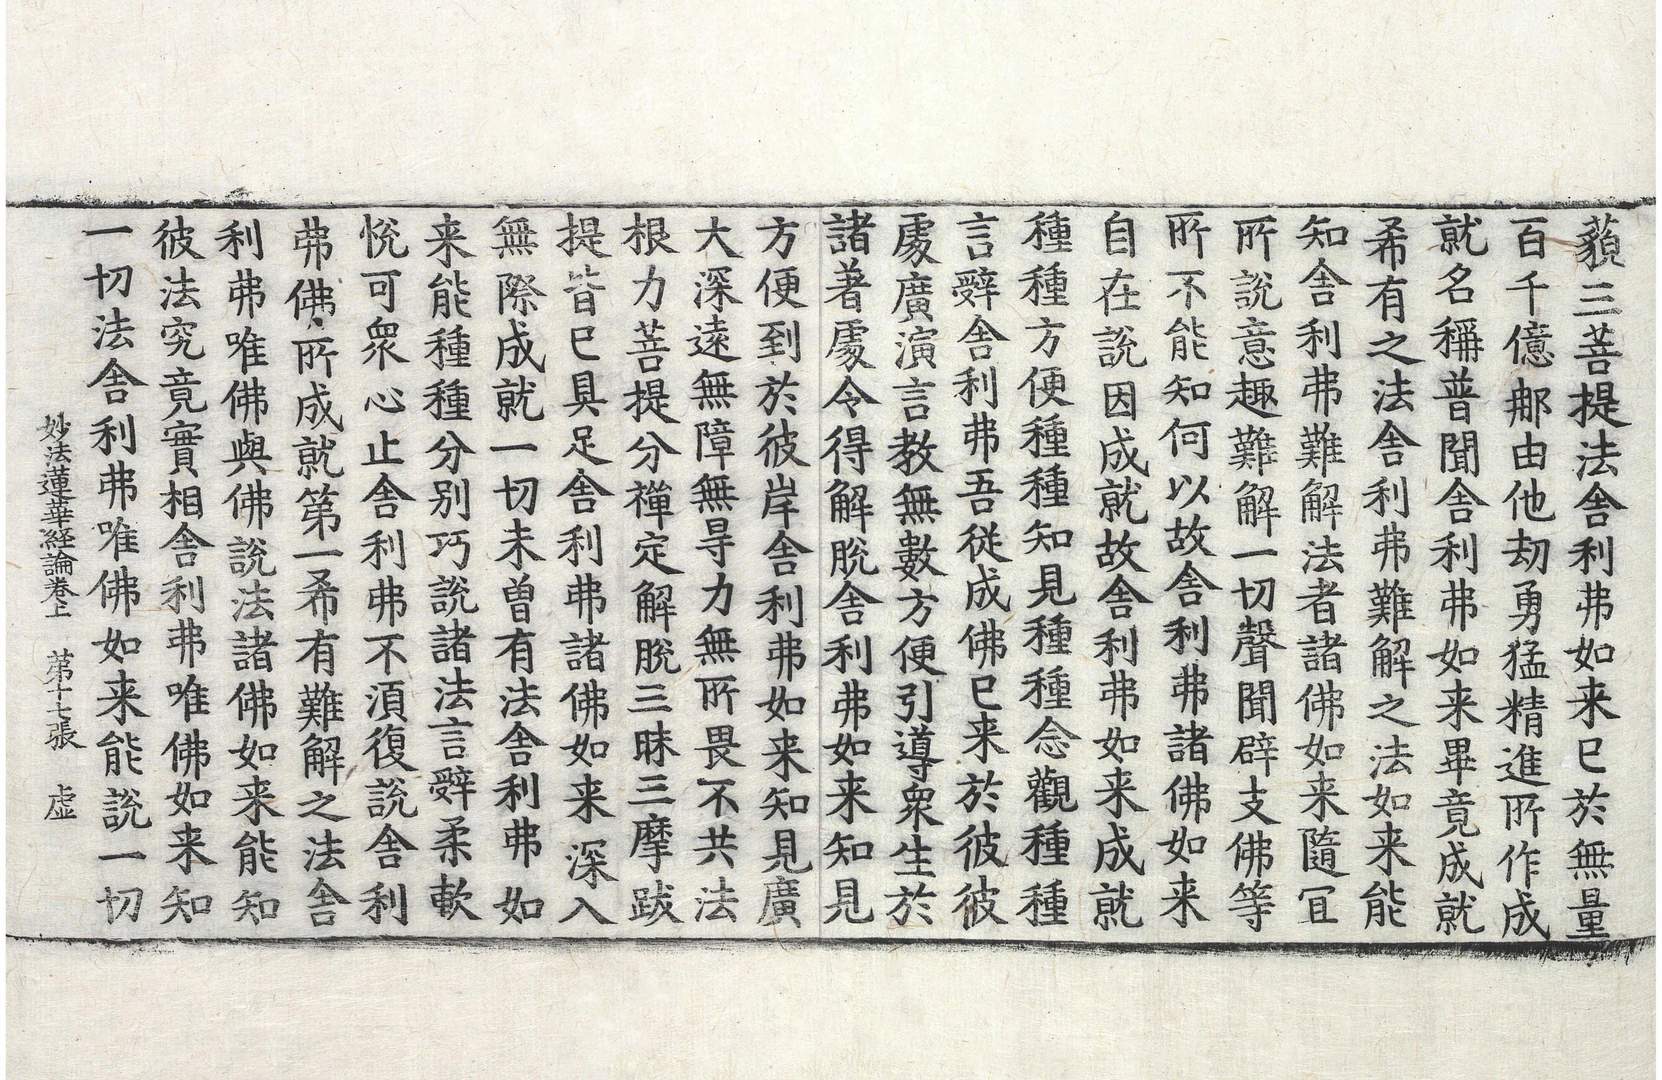 藐三菩提法舎利弗如来已於無量
百千億那由他劫勇猛精進所作成
就名稱普聞舎利弗如来畢竟成就
希有之法舎利弗難解之法如来能
知舎利弗難解法者諸佛如来隨冝
所說意趣難解一切聲聞辟支佛等
所不能知何以故舎利弗諸佛如来
自在說因成就故舎利弗如来成就
種種方便種種知見種種念觀種種
言辤舎利弗吾従成佛已来於彼彼
處廣演言教無數方便引導衆生於
諸著處令得解脫舎利弗如来知見
方便到於彼岸舎利弗如来知見廣
大深遠無障無㝵力無所畏不共法
根力菩提分禪定解脫三昧三摩跋
提皆已具足舎利弗諸佛如来深入
無際成就一切未曽有法舎利弗如
来能種種分別巧說諸法言辤柔軟
悅可衆心止舎利弗不湏復說舎利
弗佛所成就第一希有難解之法舎
利弗唯佛與佛說法諸佛如来能知
彼法究竟實相舎利弗唯佛如来知
一切法舎利弗唯佛如来能說一切
妙法蓮華経論卷上　第十七張　虛